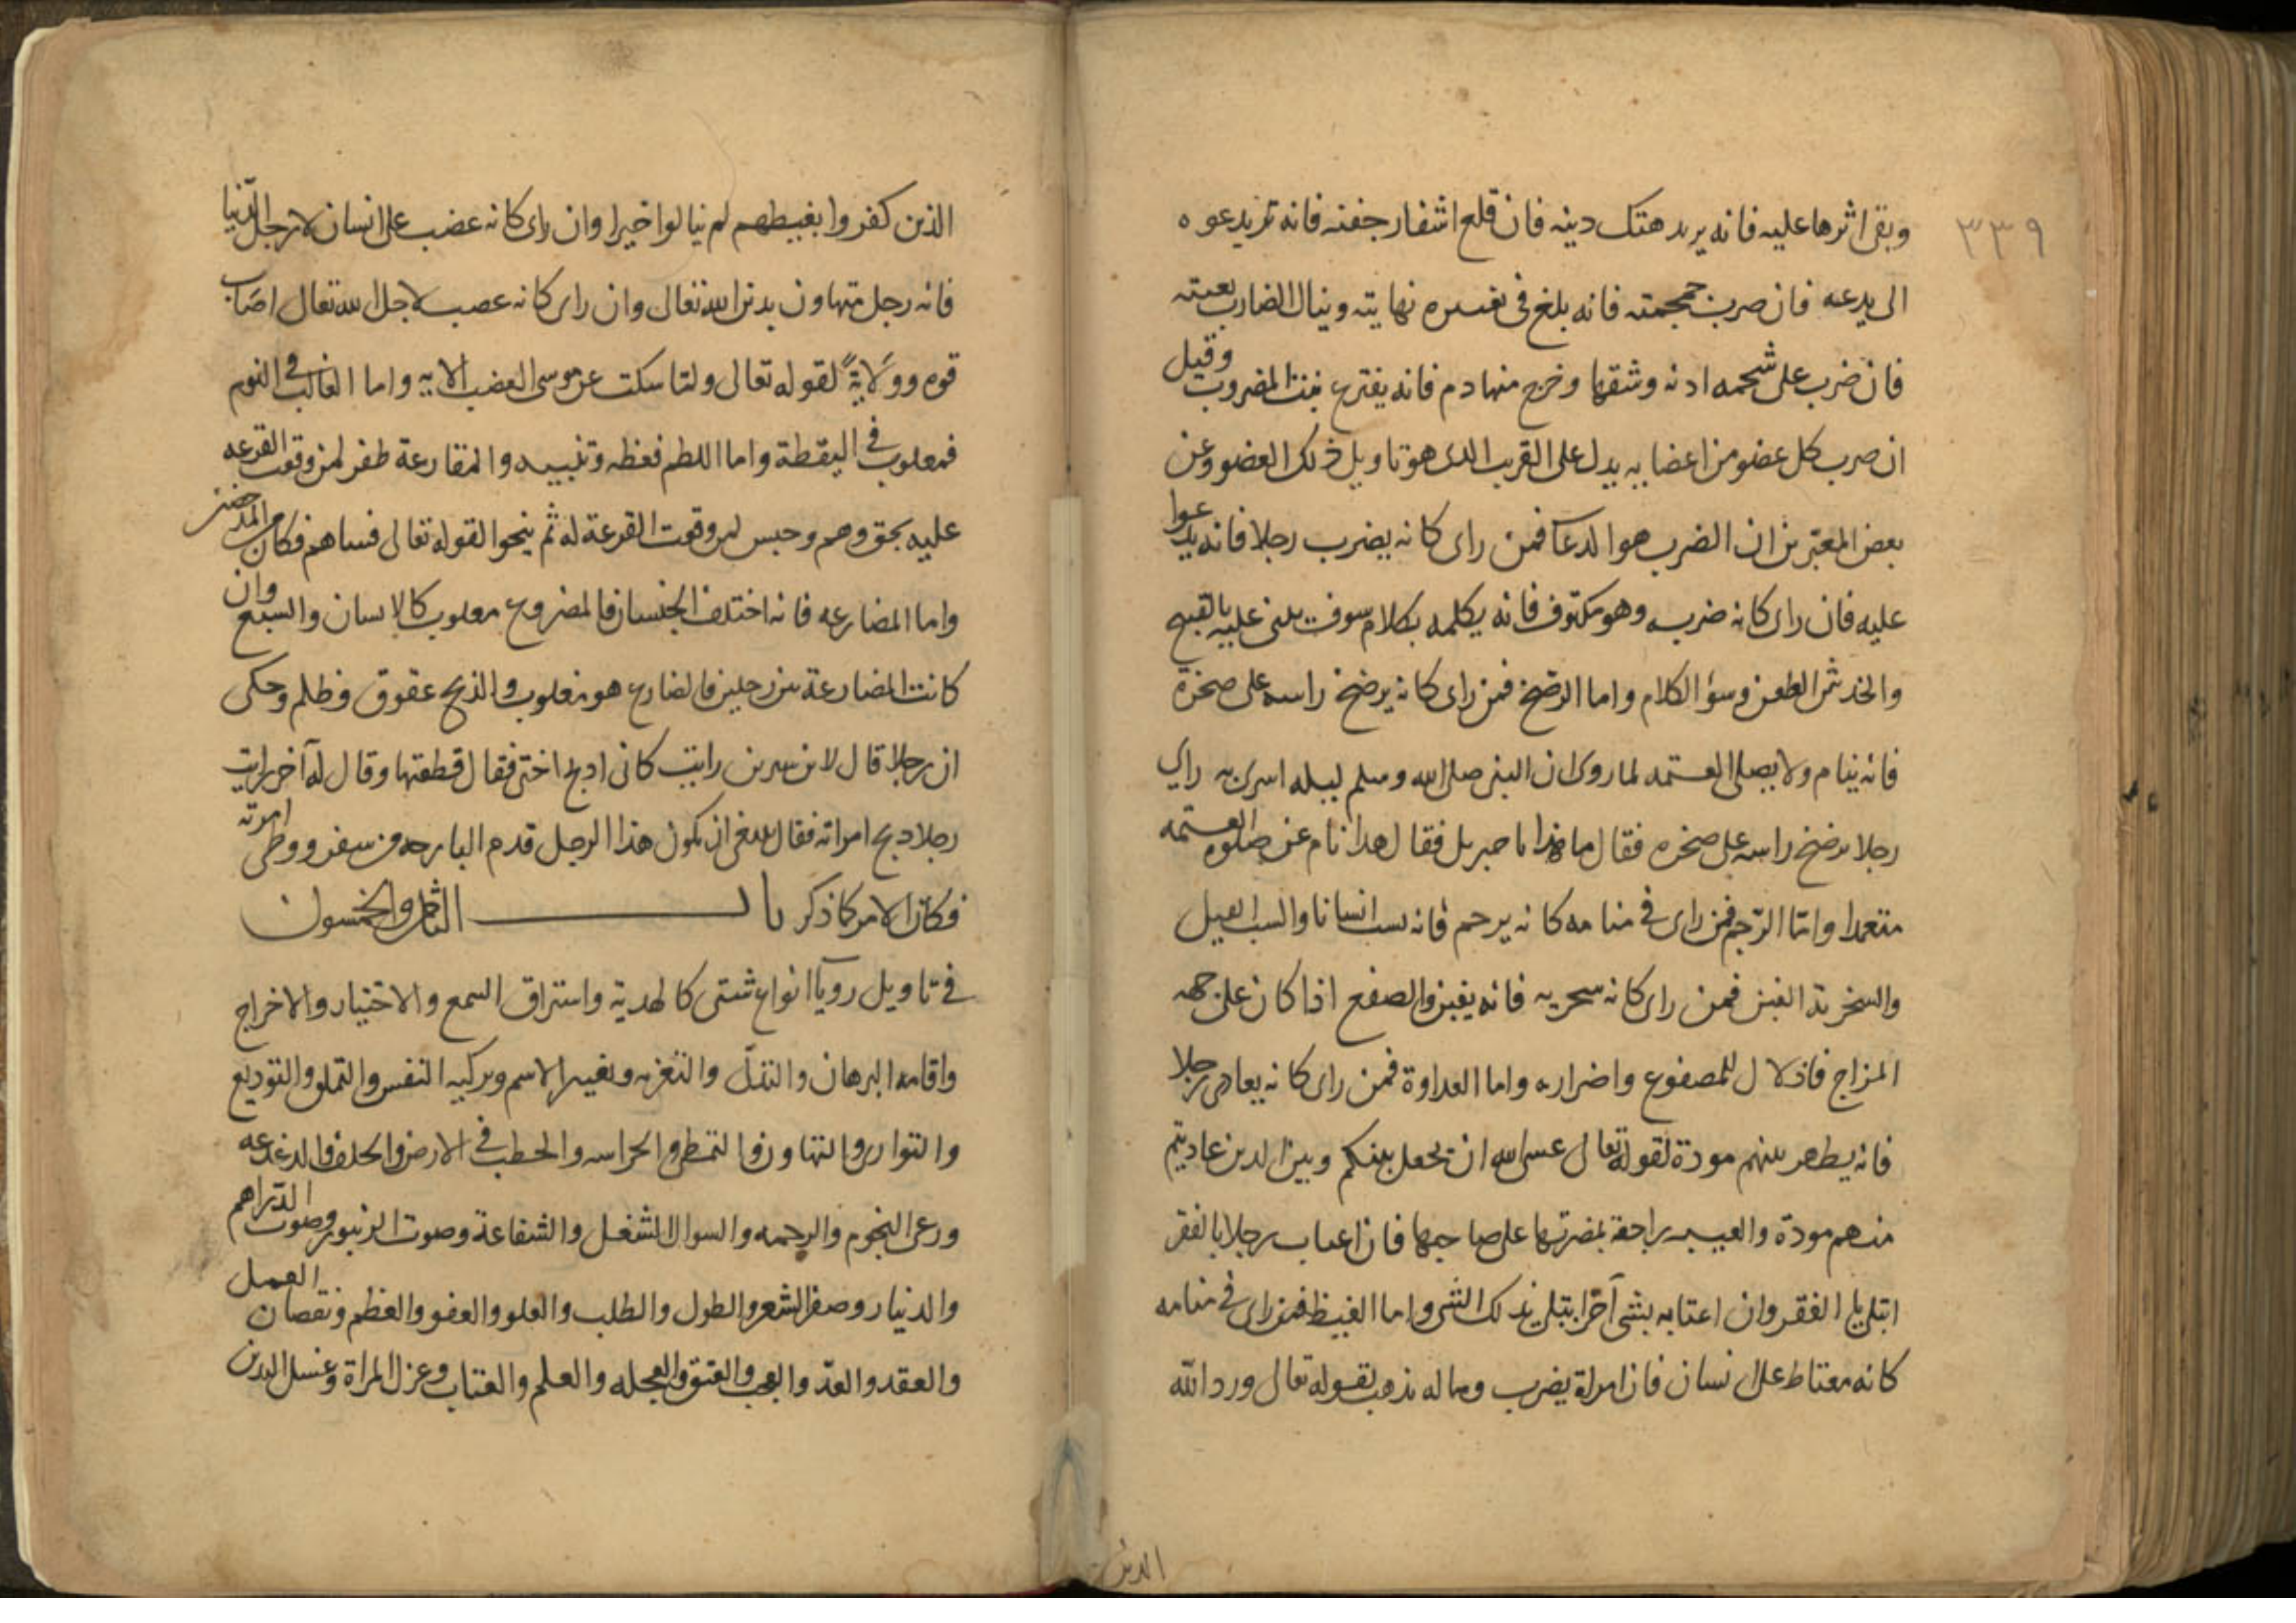 ٣٣٩
وبقى اثرها عليه فانه يريد هتك دينه فان قلع اشفار جفنه فانه يريد عوه
الى بدعه فان ضرب جمجمته فانه بلغ فى نفسه نهايته وينال الضارب بغيته
فان ضرب على شحمه اذنه وشقها وخرج منها دم فانه يفترع بنت المضروب وقيل
ان ضرب كل عضو من اعضايه يدل على القريب الذى هو تاويل ذلك العضو وعن
بعض المعبرين ان الضرب هو الدعا فمن راى كانه يضرب رجلا فانه يدعوا
عليه فان راى كانه ضربه وهو مكتوف فانه يكلمه بكلام سوء ويثنى عليه بالقبيح
والخدش الطعن وسؤ الكلام واما الرضخ فمن راى كانه يرضخ راسه على صخرة
فانه ينام ولا يصلى العتمه لما روى ان النبى صلى الله وسلم ليله اسرى به راى
رجلا يرضخ راسه على صخره فقال ما هذا يا جبريل فقال هذا نام عن صلوه العتمه
متعمدا واما الرجم فمن راى فى منامه كانه يرجم فانه يسب انسانا والسب القيل
والسخرية الغبن فمن راى كانه سخر به فانه يغبن والصفع اذا كان على جهه
المزاح فاذلال للمصفوع واضراره واما العداوة فمن راى كانه يعادى رجلا
فانه يظهر بينهم مودة لقوله تعالى عسى الله ان يجعل بينكم وبين الذين عاديتم
منهم مودة والغيبه راجعة بمضرتها على صاحبها فان اغتاب رجلا بالفقر
ابتلى بالفقر وان اغتابه بشى آخر ابتلى بذلك الشى واما الغيظ فمن راى فى منامه
كانه مغتاظ على انسان فان امره يضرب وماله يذهب لقوله تعالى ورد الله
الذين
الذين كفروا بغيظهم لم ينالوا خيرا وان راى كانه غضب على انسان لاجل الدنيا
فانه رجل متهاون بدين الله تعالى وان راى كانه غضب لاجل الله تعالى اصاب
قوه وولاية لقوله تعالى ولما سكت عن موسى الغضب الايه واما الغالب فى النوم
فمغلوب فى اليقظة واما اللطم فعظه وتنبيه والمقارعة ظفر لمن وقعت القرعه
عليه بحق وهم وحبس لمن وقعت القرعة له ثم ينجوا لقوله تعالى فساهم فكان من المدحضين
واما المصارعه فانه اختلف الجنسان فالمصروع مغلوب كالانسان والسبع وان
كانت المصارعة بين رجلين فالصارع هو مغلوب والذبح عقوق وظلم وحكى
ان رجلا قال لابن سيرين رايت كانى اذبح اختى فقال قطعتها وقال له آخر رايت
رجلا ذبح امراته فقال ينبغى ان يكون هذا الرجل قدم البارحه من سفر ووطى امرته
فكان الامر كما ذكر باب الثامن والخمسون
فى تاويل رويا انواع شتى كالهدية واستراق السمع والاختيار والاخراج
واقامه البرهان والتذلل والتعزيه وتغيير الاسم وتزكيه النفس والتملق والتوديع
والتوارى والتهاون والتمطى والحراسه والحطب فى الارض والحلف والدغدغه
ورعى النجوم والرحمه والسوال الشغل والشفاعة وصوت الزنبور وصوت الدراهم
والدنيار وصفر الشعر والطول والطلب والعلو والعفو والعظم ونقصان العمل
والعقد والعد والعجب والعتق والعجله والعلم والعتاب وعزل المراة وغسل اليدين